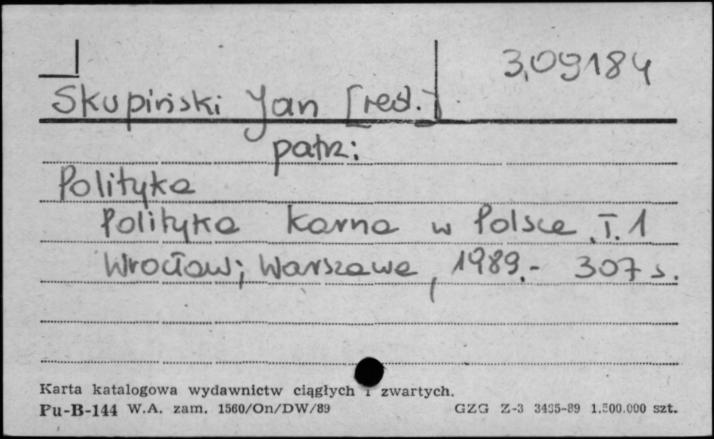 3,09184
Skupiński Jan [red.]
patrz:
Polityka
Polityka karna w Polsce. T. 1
Wrocław; Warszawa, 1989.- 307 s.
Karta katalogowa wydawnictw ciągłych i zwartych.
Pu-B-144 W.A. zam. 1560/On/DW/89 GZG Z-3 3495-89 1.500.000 szt.